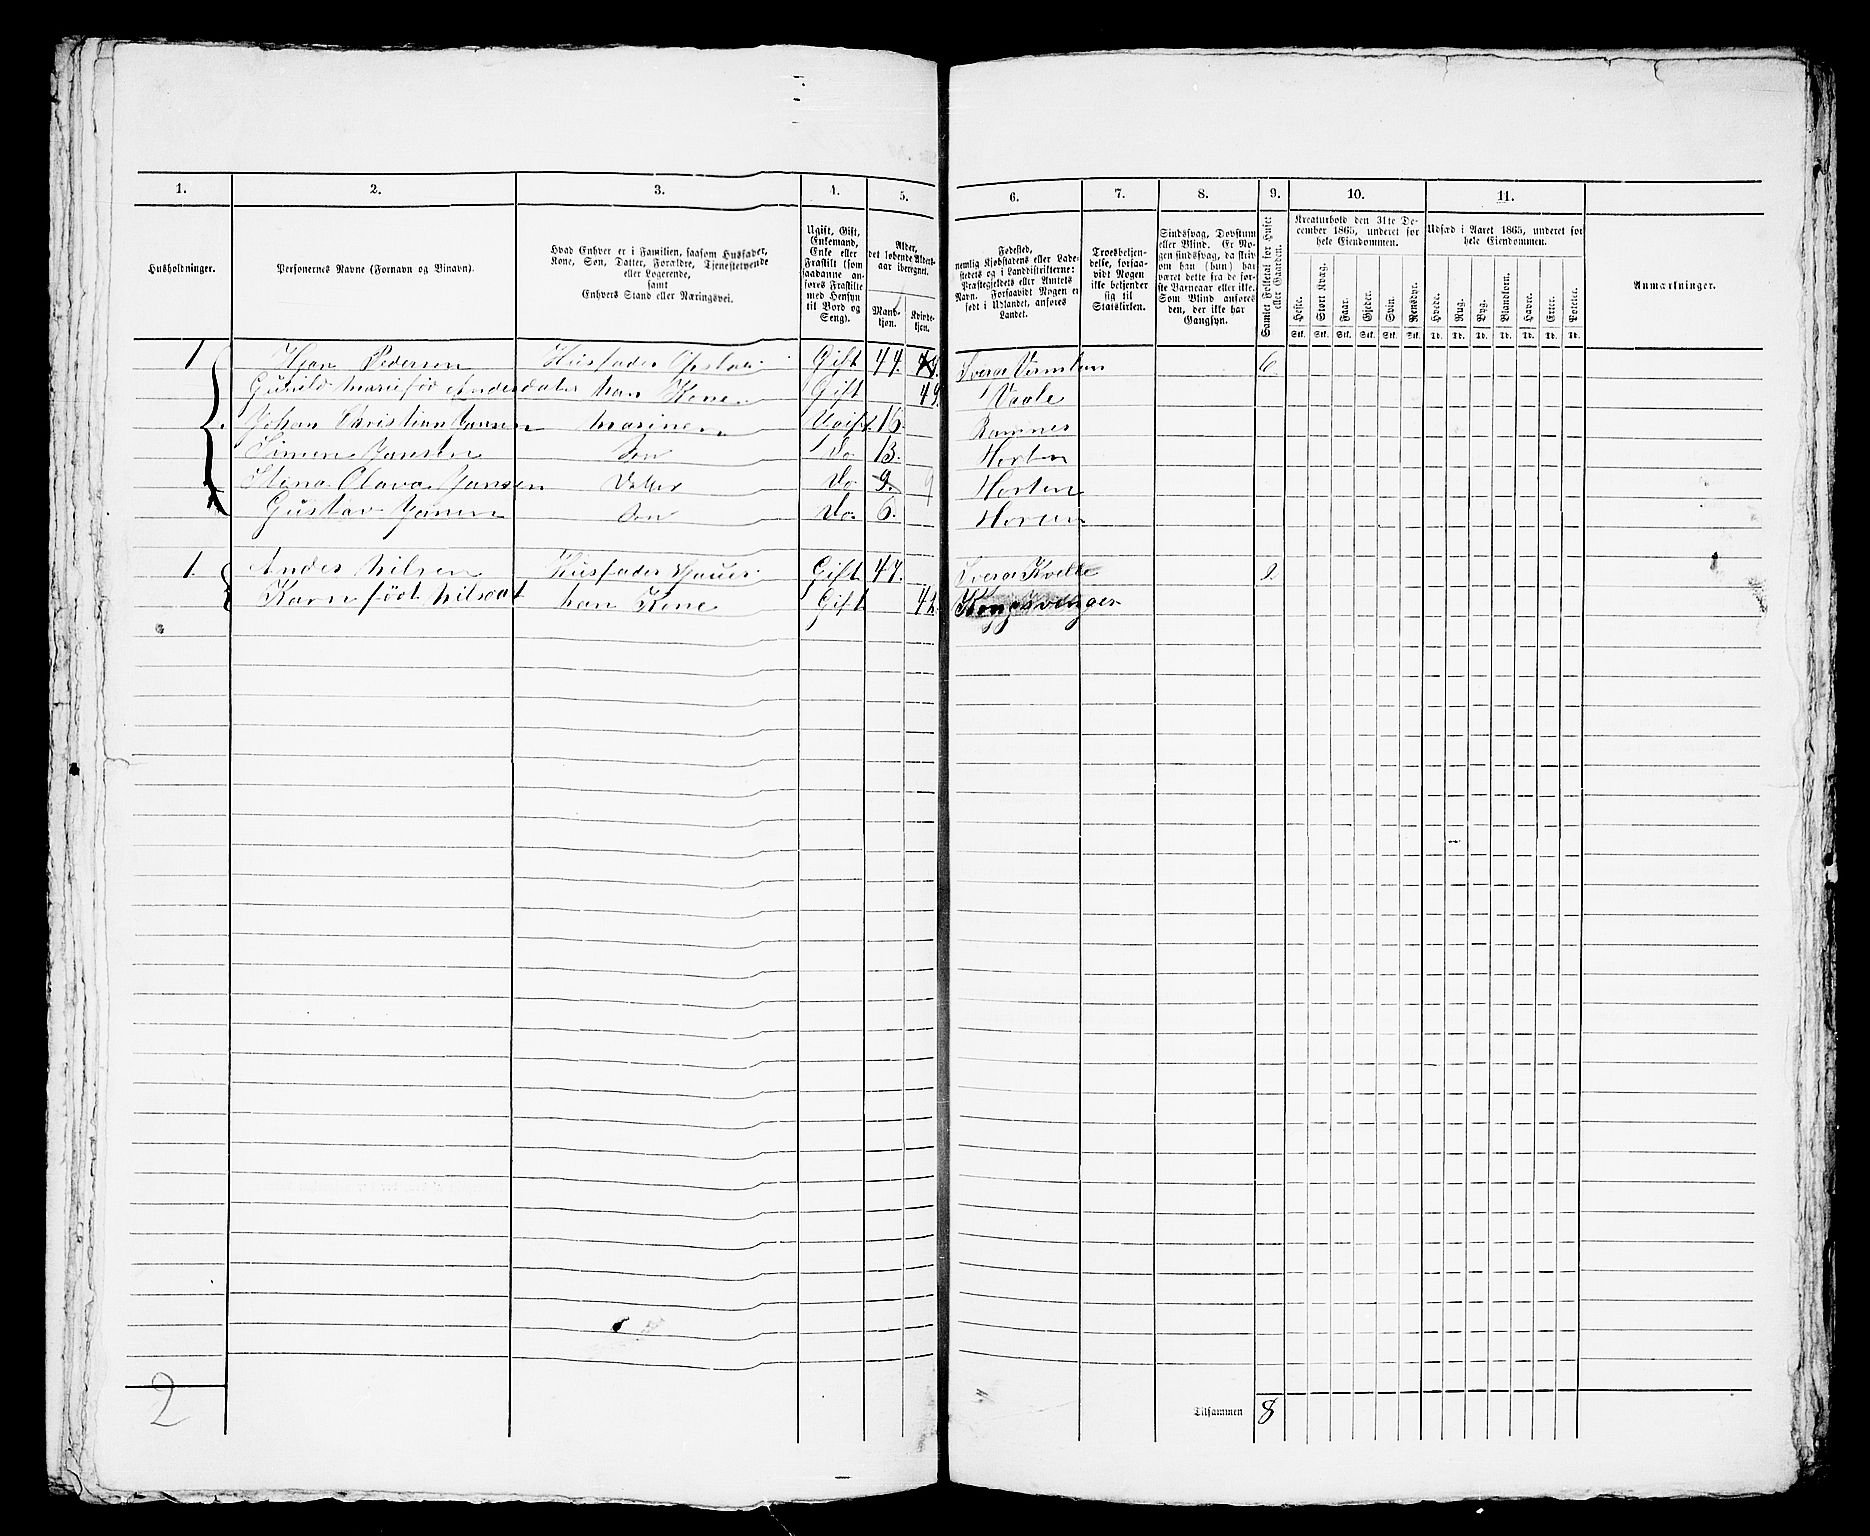 1. 2. 3. 4. 5. 6. 7. 8. 9. 10. 11.
Husholdninger.
Personernes Navne (Fornavn og Binavn).
Hvad Enhver er i Familien, saasom Husfader,
Kone, Søn, Datter, Forældre, Tjenestetyende
eller Logerende,
samt
Enhvers Stand eller Næringsvei.
Ugift, Gift,
Enkemand,
Enke eller
Fraskilt (som
saadanne an-
føres Fraskilte
med Hensyn
til Bord og
Seng).
Alder,
det løbende Alders-
aar iberegnet.
Mand-
kjøn.
Kvinde-
kjøn.
Fødested,
nemlig Kjøbstadens eller Lade-
stedets og i Landdistrikterne:
Præstegjeldets eller Amtets
Navn. Forsaavidt Nogen er
født i Udlandet, anføres
Landet.
Troesbekjen-
delse, forsaa-
vidt Nogen
ikke bekjender
sig til
Statskirken.
Sindssvag, Døvstum
eller Blind. Er No-
gen sindssvag, da skriv
om han (hun) har
været dette fra de før-
ste Barneaar eller ikke.
Som Blind anføres
den, der ikke har
Gangsyn.
Samlet Folketal for Huset
eller Gaarden.
Kreaturhold den 31te De-
cember 1865, underet for
hele Eiendommen.
Heste. Stort Kvæg. Faar. Gjeder. Svin. Rensdyr.
Stk. Stk. Stk. Stk. Stk. Stk.
Udsæd i Aaret 1865, underet for
hele Eiendommen.
Hvede. Rug. Byg. Blandkorn. Havre. Erter. Poteter.
Td. Td. Td. Td. Td. Td. Td.
Anmærkninger.
1 Pedersen Husfader Gift 44. Vermlan 6
Gunild Marie fød Andersdater han Kone Gift 49. Vaale
Johan Christian Jansen 16. Ramnes
Simen Jansen Søn Do 13. Horten
Stina Olava Jansen Do 9. 9 Horten
Gustav Jansen Søn Do. 6. Horten
1. Andes Nilsen Husfader Gift 47. 2
Karn født Nilsdat han Kone Gift 42 Kongsvinger
Tilsammen 8
2